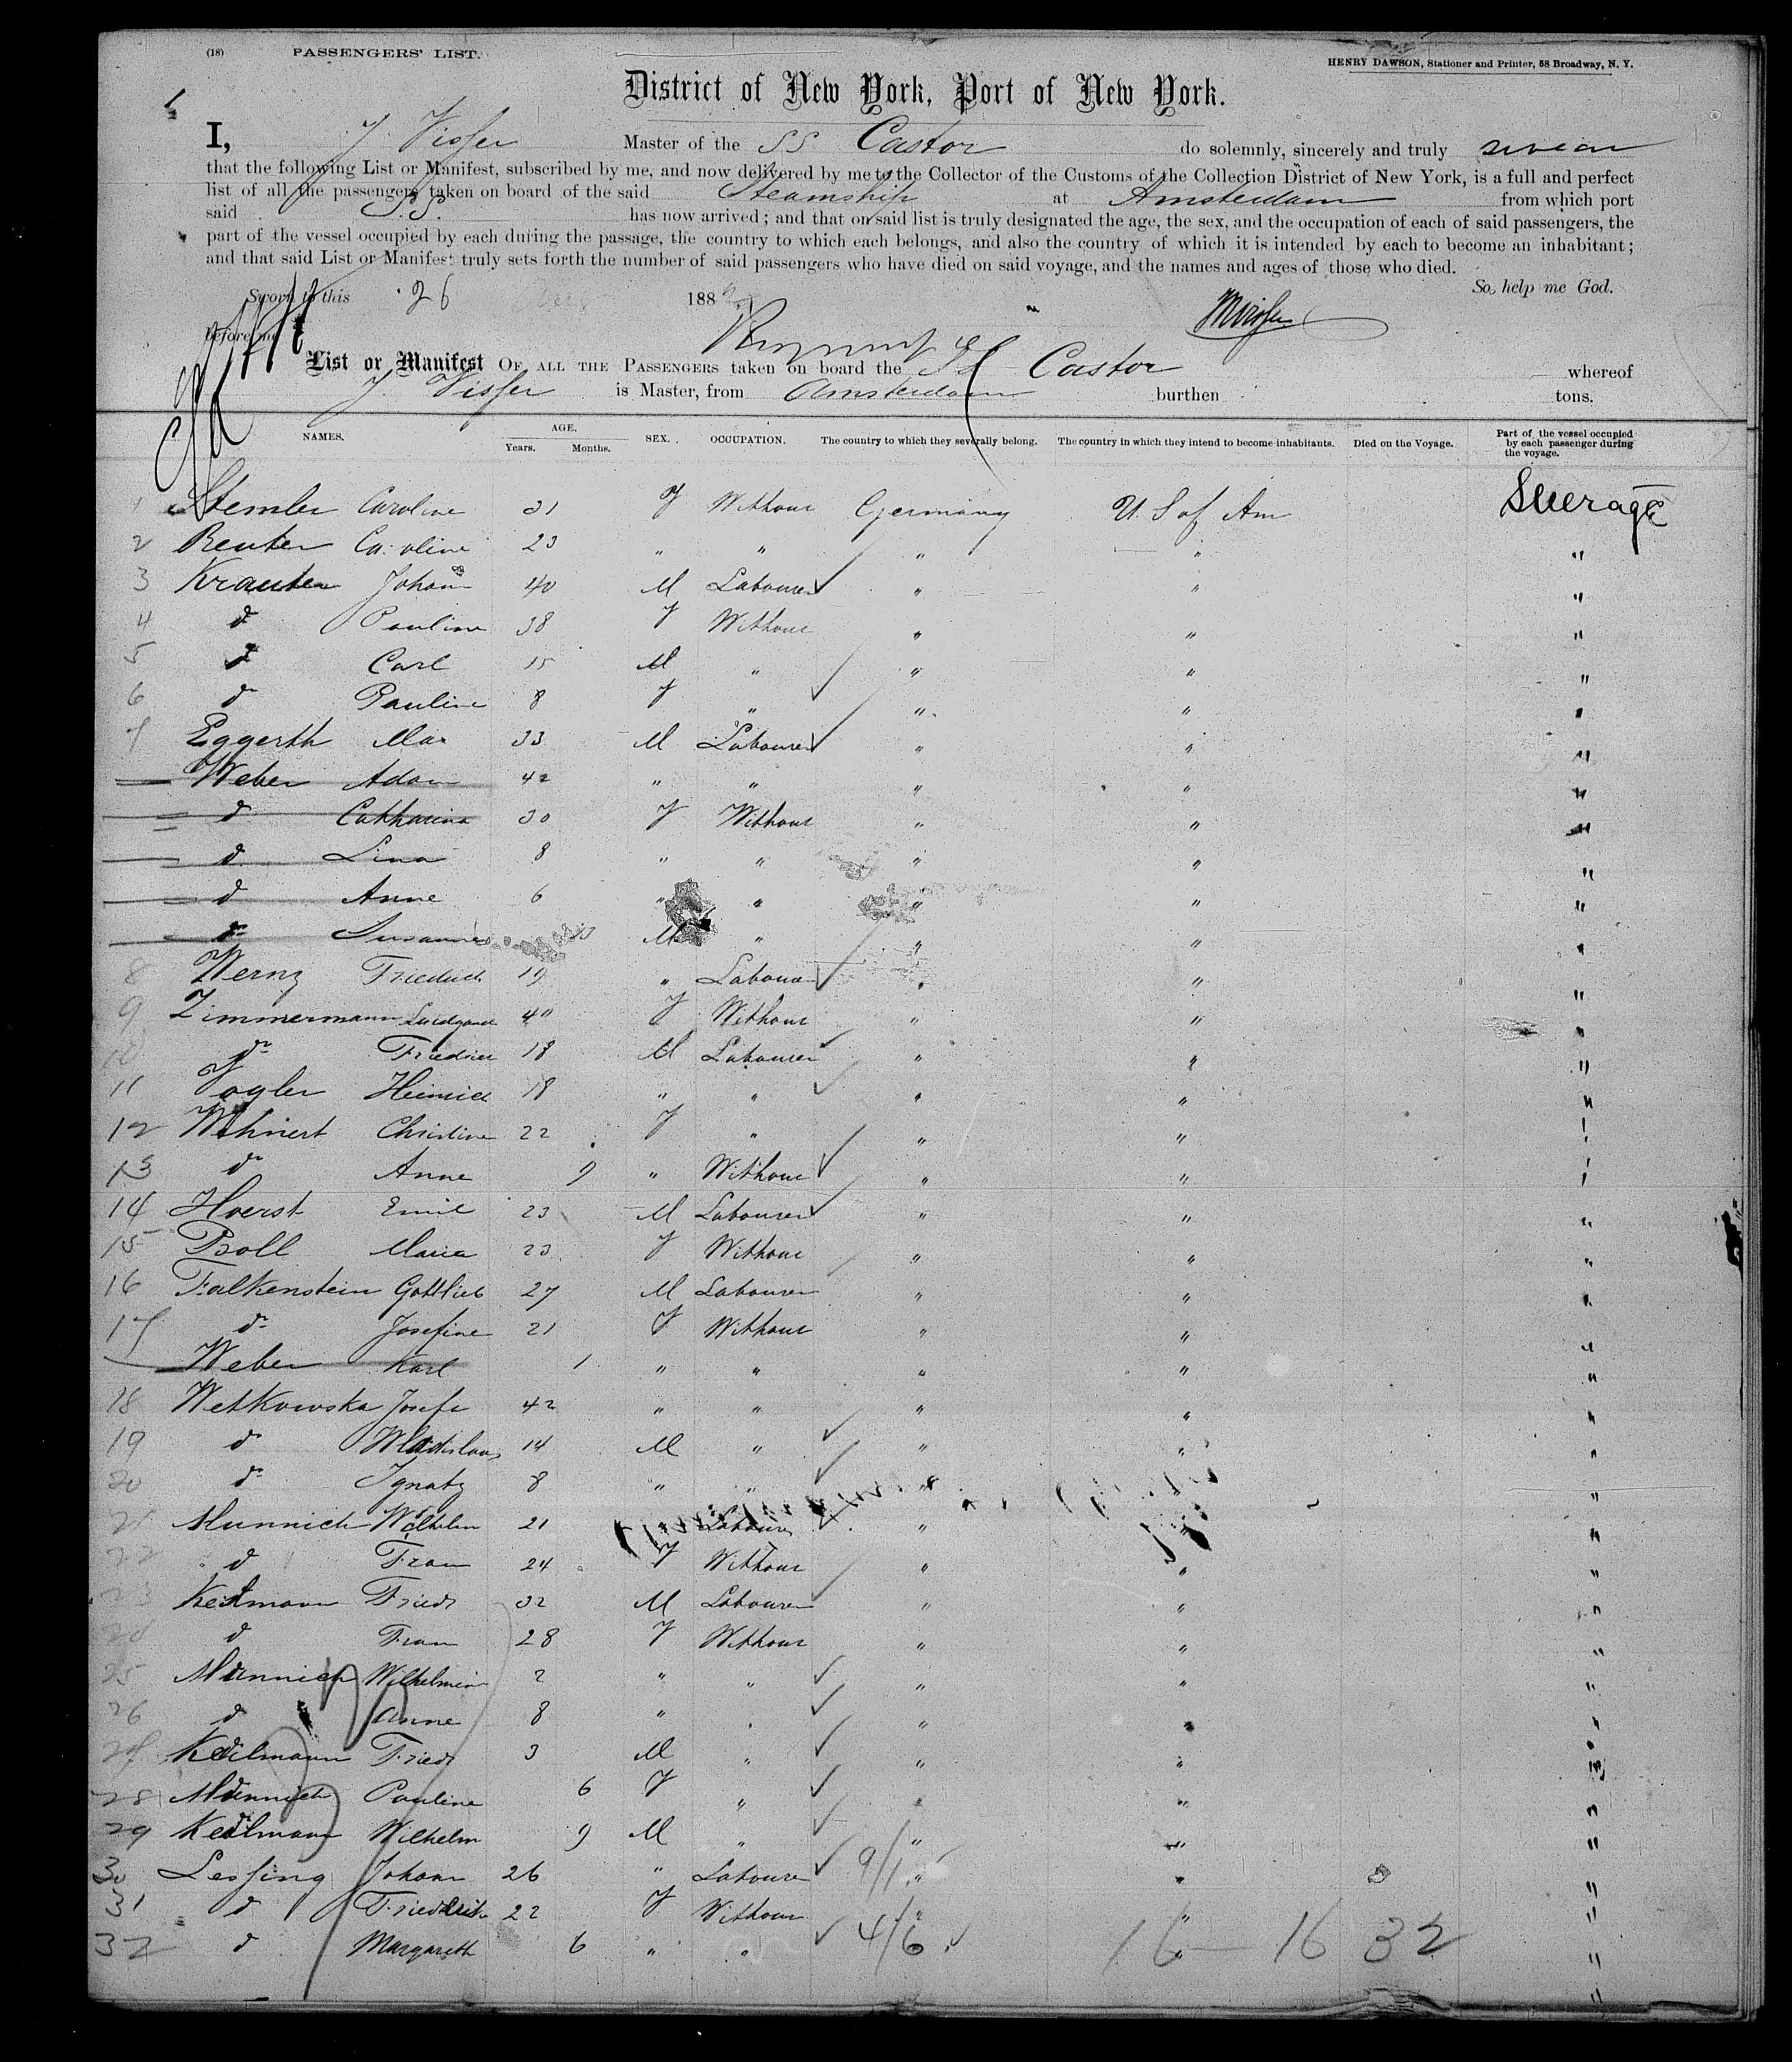 (18) PASSENGERS' LIST. HENRY DAWSON, Stationer and Printer, 58 Broadway, N. Y.
District of New York, Port of New York.
1
I, J Visser Master of the SS Castor do solemnly, sincerely and truly swear
that the following List or Manifest, subscribed by me, and now delivered by me to the Collector of the Customs of the Collection District of New York, is a full and perfect
list of all the passengers taken on board of the said Steamship at Amsterdam from which port
said S.S. has now arrived; and that on said list is truly designated the age, the sex, and the occupation of each of said passengers, the
part of the vessel occupied by each during the passage, the country to which each belongs, and also the country of which it is intended by each to become an inhabitant;
and that said List or Manifest truly sets forth the number of said passengers who have died on said voyage, and the names and ages of those who died.
So help me God.
Sworn to this 26 188
before me
List or Manifest OF ALL THE PASSENGERS taken on board the SS Castor whereof
J Visser is Master, from Amsterdam burthen tons.
NAMES. AGE. Years. Months. SEX. OCCUPATION. The country to which they severally belong. The country in which they intend to become inhabitants. Died on the Voyage. Part of the vessel occupied by each passenger during the voyage.
1 Stemler Caroline 31 F Without Germany U. S of Am Steerage
2 Reuter Caroline 23 " " " " "
3 Krauter Johann 40 M Labourer " " "
4 do Pauline 38 F Without " " "
5 do Carl 15 M " " " "
6 do Pauline 8 F " " " "
7 Eggerth Max 33 M Labourer " " "
Weber Adam 42 " " " " "
do Catharina 30 F Without " " "
d Lina 8 " " " " "
d Anne 6 " " " " "
do Susanne M " " " "
8 Wernz Friedrich 19 " Labourer " " "
9 Zimmermann 40 F Without " " "
10 do Friedrich 18 M Labourer " " "
11 Vogler Heinrich 18 " " " " "
12 Wehnert Christine 22 F " " " "
13 do Anne 9 " Without " " "
14 Hoerst Emil 23 M Labourer " " "
15 Boll Maria 23 F Without " " "
16 Falkenstein Gottlieb 27 M Labourer " " "
17 do Josefine 21 F Without " " "
Weber Karl 1 " " " " "
18 Wetkowska Josefe 42 " " " " "
19 do Wladislaus 14 M " " " "
20 do Ignatz 8 " " " " "
21 Munnich Wilhelm 21 Labourer " " "
22 d Frau 24 F Without " " "
23 Keilmann Friedr 32 M Labourer " " "
24 d Frau 28 F Without " " "
25 Munnich Wilhelmine 2 " " " " "
26 d Anne 8 " " " " "
27 Keilmann Friedr 3 M " " " "
28 Munnich Pauline 6 F " " " "
29 Keilmann Wilhelm 9 M " " " "
30 Lessing Johann 26 " Labourer 9/1 " " "
31 d Friedrich 22 F Without " " "
32 d Margareth 6 " " 4/6 " 16 — 16 32 "